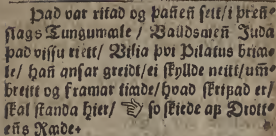 Þad var ritad og pañeñ sett/ i þreñ-
slags Tungumæle / Valldsmeñ Juda
þad vissu riett/ Vilia þvi Pilatus bricæ-
le/ hañ ansar greidt/ ei skyllde neitt/ um-
breitt og framar tiæde/ hvad skrifad er/
skal standa hier/ ☞ so skiede ap Drott-
eñs Ræde.